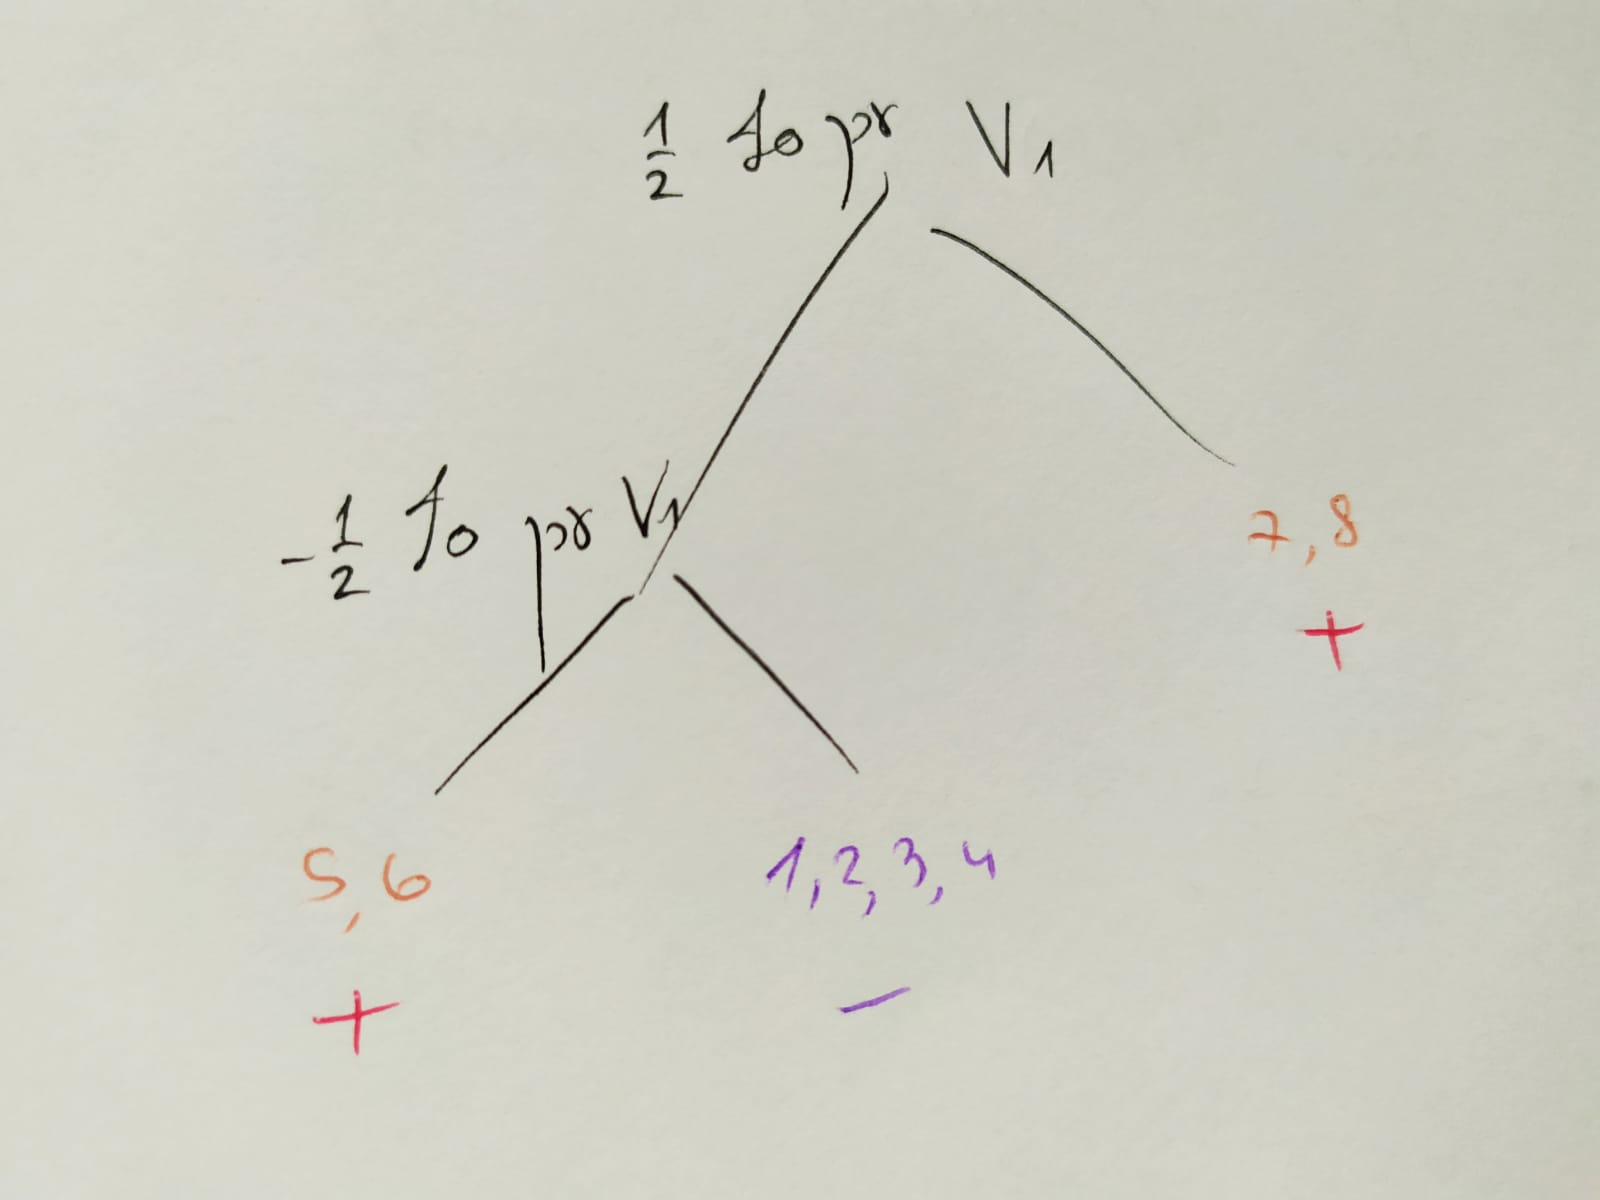 1/2 fo pr V1
-1/2 fo pr V1
7, 8
+
5, 6
1, 2, 3, 4
+
-